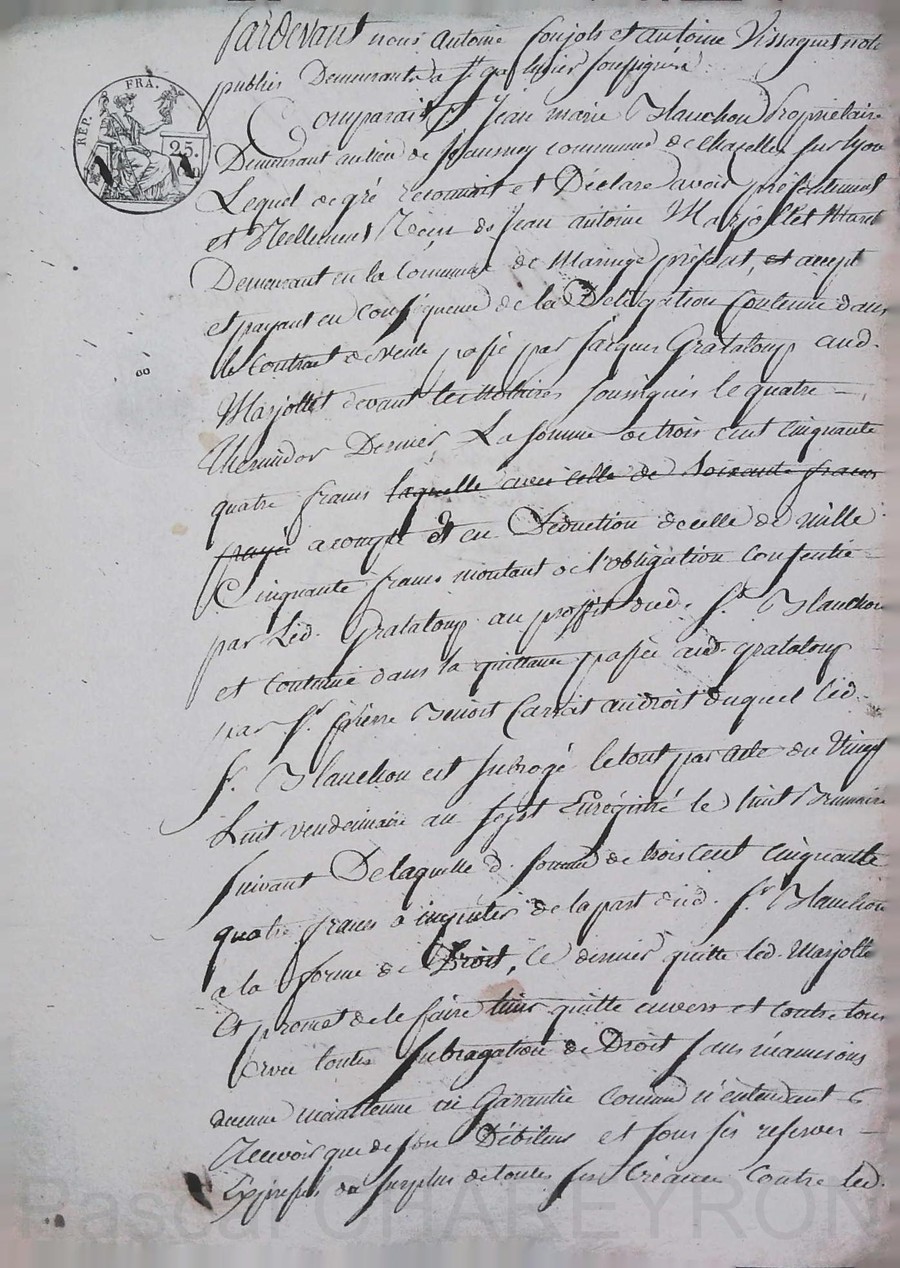 Pardevant nous Antoine Soujols et antoine Vissaguet not.
publics Demeurants a St. galmier soussignés
Comparait St Jean marie Blanchon Propriétaire
Demeurant au lieu de commune de chazelles sur lyon
Lequel de gré reconnoit et Déclare avoir présentement
et Réellement Reçu de Jean antoine Marjollet
Demeurant en la Commune de Maringe présent, et accept
et payant en conséquence de la Délégation Contenue dans
le Contrat de Vente passé par Jacques Grataloup aud.
Marjollet devant les Notaires soussignés le quatre
Thermidor Dernier, La somme de trois cent cinquante
quatre francs laquelle avec celle de soixante francs
payé acompte et en Déduction de celle de mille
Cinquante francs montant de l'obligation consentie
par Led. Grataloup au proffit dud. Sr. Blanchon
et contenue dans la quittance passée aud. grataloup
par Sr. pierre Benoit au droit duquel led.
Sr. Blanchon est subrogé le tout par acte du Vingt
huit vendemiaire an sept Enrégistré le huit Brumaire
suivant De laquelle d. somme de trois cent cinquante
quatre francs a imputer de la part dud. Sr Blanchon
a la forme de Droit, Ce dernier quitte led. Marjollet
Et promet de le faire tenir quitte envers et contre tous
avec toutes subrogation de Droit sans néanmoins
aucune maintenue ni Garantie comme n'entendant
Recevoir que de son Débiteur et sous ses reserves
Expresses du surplus de toutes ses Créances Contre led.
REP. FRA.
25.
Pascal CHAREYRON